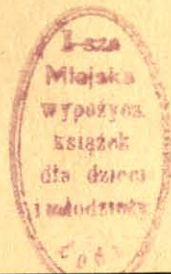 I-sza
Miejska
wypożycz.
książek
dla dzieci
i młodzieży